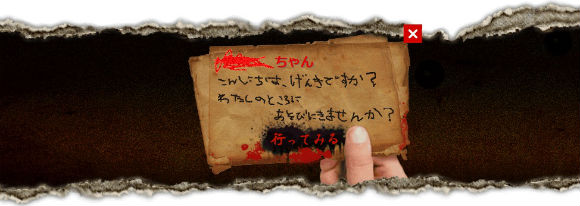 ちゃん
こんにちは、げんきですか？
わたしのところに
あそびにきませんか？
行ってみる